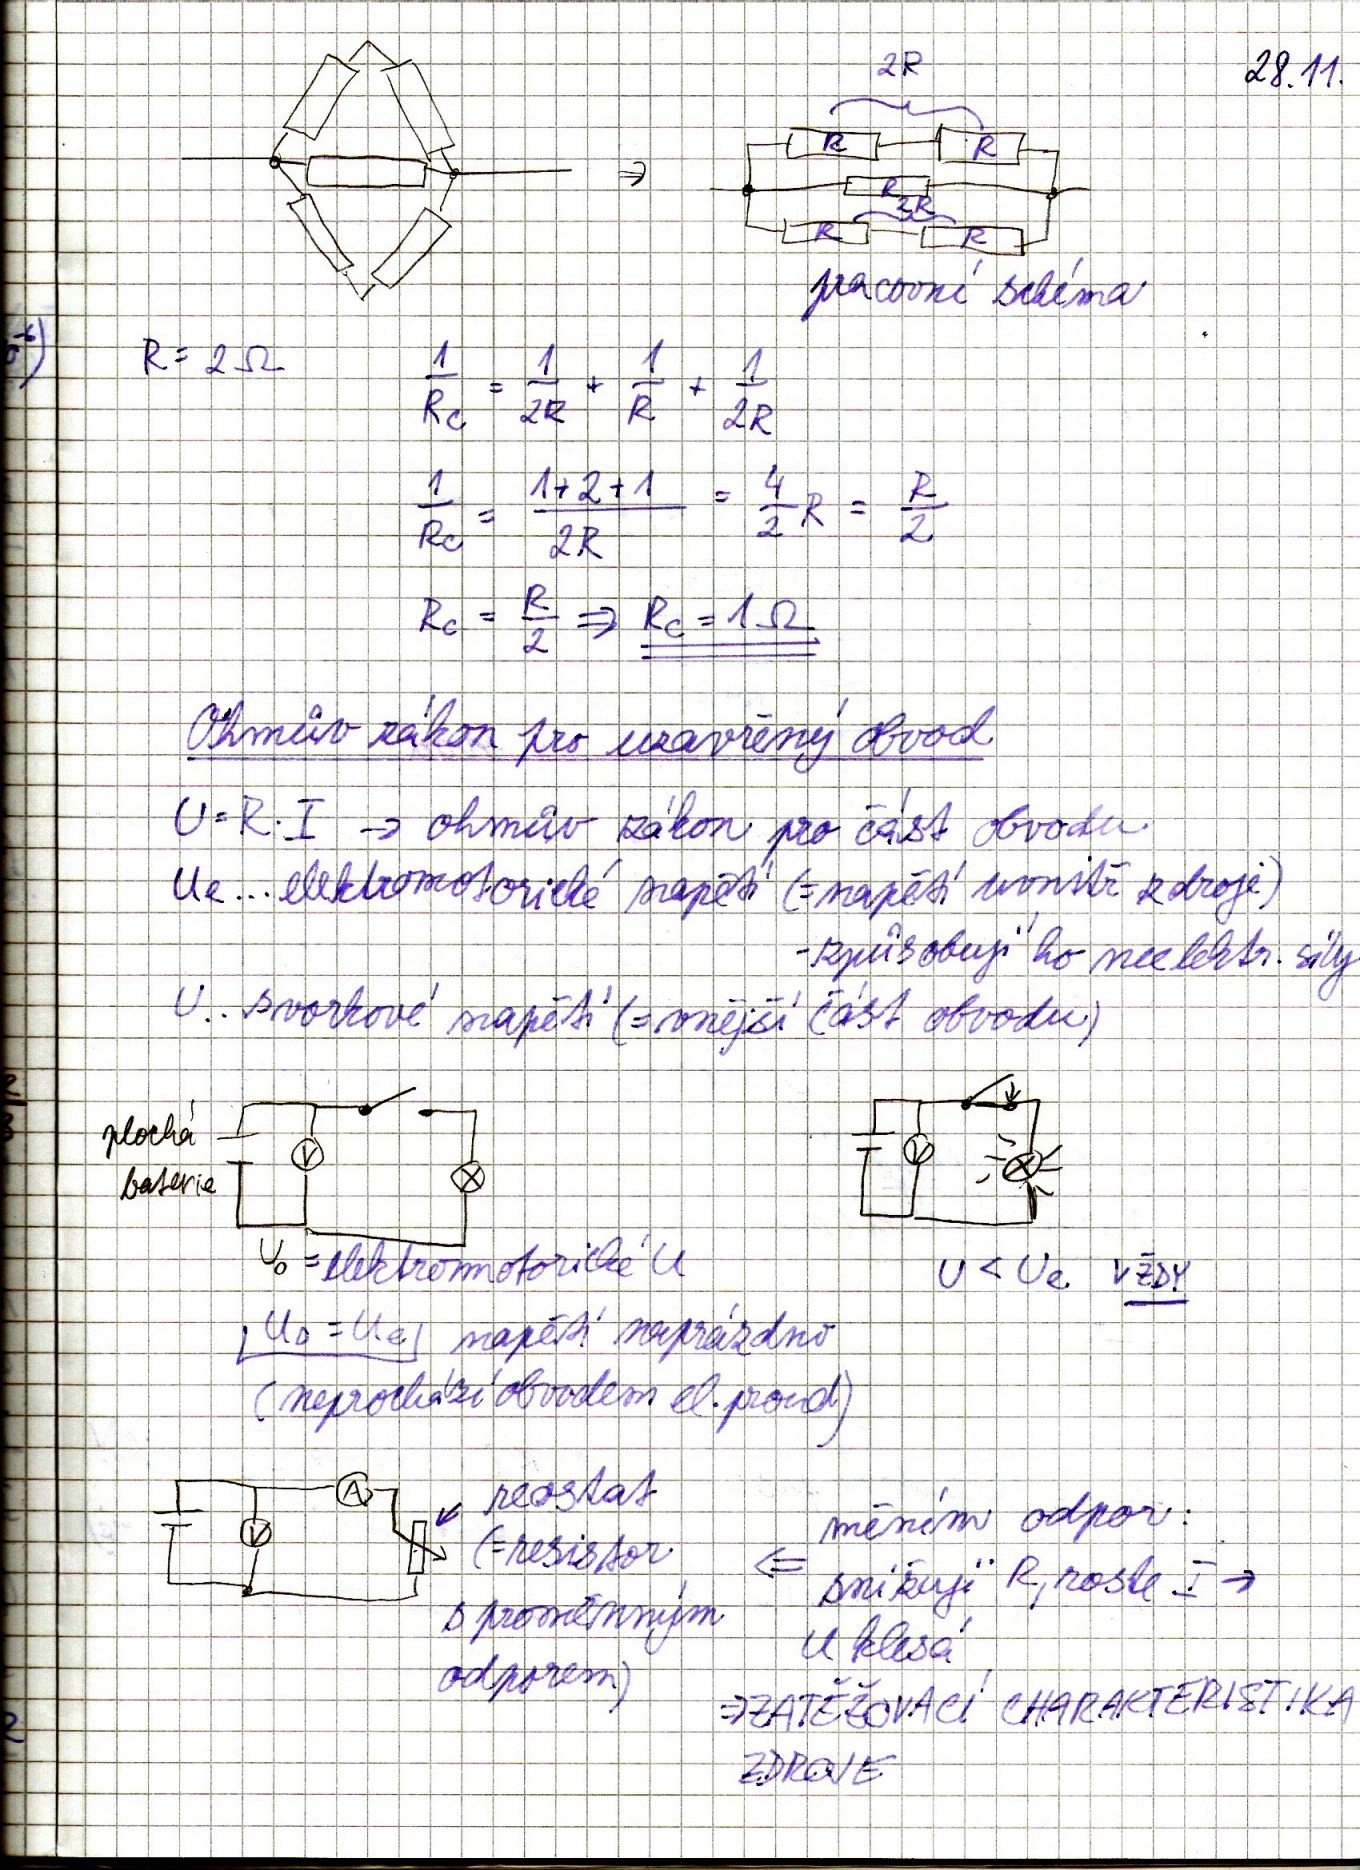 28.11.
2R
R R
R
2R
R R
pracovní schéma
R = 2Ω
1/Rc = 1/2R + 1/R + 1/2R
1/Rc = 1+2+1/2R = 4/2 R = R/2
Rc = R/2 ⇒ Rc = 1Ω
Ohmův zákon pro uzavřený obvod
U = R · I → ohmův zákon pro část obvodu
Ue ... elektromotorické napětí (= napětí uvnitř zdroje)
- způsobují ho neelektr. síly
U.. svorkové napětí (= vnější část obvodu)
plochá
baterie
V
V
U₀ = elektromotorické U
U < Ue VŽDY
U₀ = Ue napětí naprázdno
(neprochází obvodem el. proud)
A
V
reostat
(= resistor
s proměnným
odporem)
⇐ měním odpor:
snižuji R, roste I →
U klesá
⇒ ZATĚŽOVACÍ CHARAKTERISTIKA
ZDROJE